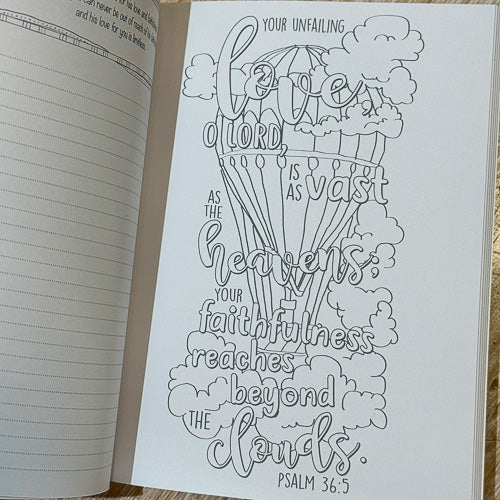 for his love and faith
can never be out of reach of his
and his love for you is limitless.
YOUR UNFAILING
love,
O LORD,
IS
AS vast
AS
THE
heavens;
YOUR
faithfulness
reaches
beyond
THE
clouds.
PSALM 36:5